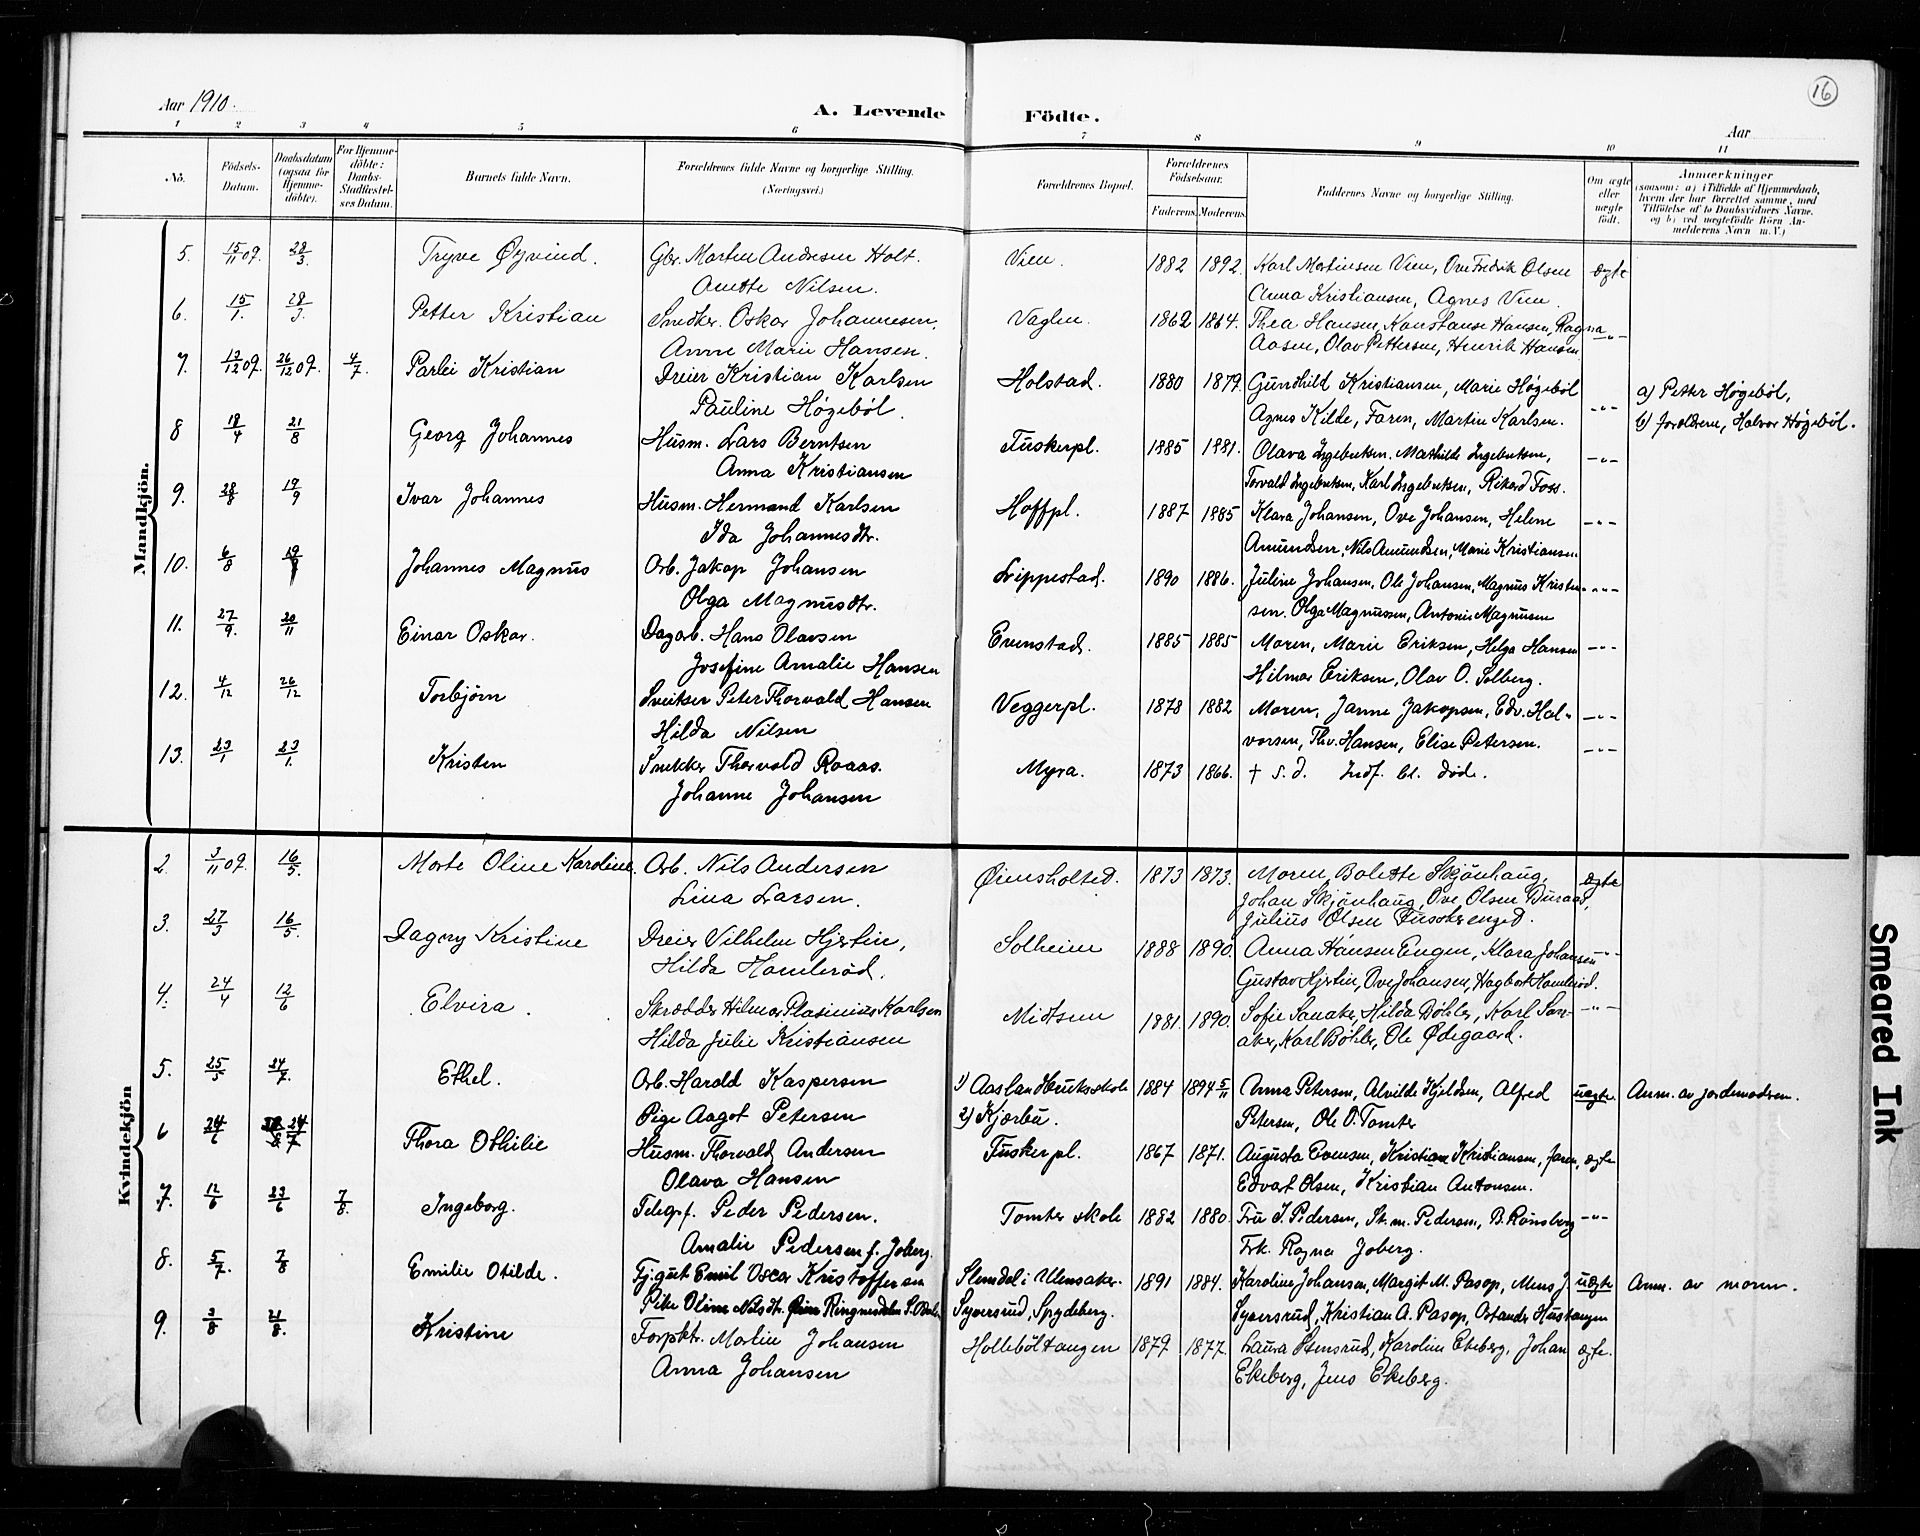 16
Aar 1910.
A. Levende Födte.
Aar
1 2 3 4 5 6 7 8 9 10 11
No.
Födsels-Datum.
Daabsdatum (ogsaa for Hjemmedöbte).
For Hjemmedöbte: Daabs-Stadfæstelses Datum.
Barnets fulde Navn.
Forældrenes fulde Navne og borgerlige Stilling. (Næringsvei.)
Forældrenes Bopæl.
Forældrenes Födselsaar.
Faderens. Moderens.
Faddernes Navne og borgerlige Stilling.
Om ægte eller uægte födt.
Anmærkninger
(saasom: a) i Tilfælde af Hjemmedaab, hvem der har forrettet samme, med Tilföielse af to Daabsvidners Navne. og b) ved uægtefödte Börn Anmelderens Navn m. V.)
Mandkjön.
5. 15/11 09. 28/3 Tryve Øyvind. Gbr. Martin Andresen Holt. Vien. 1882 1892. Karl Martinsen Vien, Ove Fredrik Olsen ægte
Anette Nilsen. Anna Kristiansen, Agnes Vien.
6. 15/1. 28/3. Petter Kristian Snedker. Oskar Johannesen. Vaglen. 1862 1864. Thea Hansen, Konstanse Hansen, Ragna -"-
Anne Marie Hansen. Aasen, Olav Pettersen, Henrik Hansen
7. 13/12 09. 26/12 09. 4/7. Parlei Kristian Dreier Kristian Karlsen Holstad. 1880 1879. Gunhild Kristiansen, Marie Høgeböl -"- a) Petter Høgeböl,
Pauline Högeböl. Agnes Kilde, Faren, Martin Karlsen. b) foreldrene, Halvor Høgeböl.
8 18/4 21/8 Georg Johannes Husm. Lars Berntsen Fuskerpl. 1885 1881. Olava Ingebretsen. Mathilde Ingebretsen, -"-
Anna Kristiansen Torvald Ingebretsen, Karl Ingebretsen, Rikard Foss.
9. 28/8 19/9 Ivar Johannes Husm. Hermand Karlsen Hoffpl. 1887 1885 Klara Johansen, Ove Johansen, Helene -"-
Ida Johannesdtr. Amundsen, Nils Amundsen, Marie Kristiansen
10. 6/8 19/9 Johannes Magnus Arb. Jakop Johansen Lippestad. 1890 1886. Juline Johansen, Ole Johansen, Magnus Kristian- -"-
Olga Magnusdtr. sen. Olga Magnussen, Antonie Magnusen
11. 27/9. 20/11 Einar Oskar. Dagarb. Hans Olavsen Evenstad. 1885 1885 Moren, Marie Eriksen, Helga Hansen -"-
Josefine Amalie Hansen Hilmar Eriksen, Olav O. Solberg.
12. 4/12 26/12 Torbjörn Sveitser Peter Thorvald Hansen Veggerpl. 1878 1882 Moren, Janne Jakopsen, Edv. Hal- -"-
Hilda Nilsen vorsen, Thv. Hansen, Elise Petersen.
13. 23/1 23/1. Kristen Snekker Thorvald Roaas. Myra. 1873 1866. † s. d. Indf. bl. døde. -"-
Johanne Johansen
Kvindekjön
2. 3/11 09. 16/5. Marte Oline Karoline. Arb. Nils Andersen Øiensholted. 1873 1873. Moren, Bolette Skjönhaug, ægte
Lina Larsen. Johan Skjönhaug, Ove Olsen Buraas, Julius Olsen Fuskerenged.
3. 27/3 16/5. Dagny Kristine Dreier Vilhelm Hjertin, Solheim 1888 1890. Anna Hansen Engen, Klara Johansen -"-
Hilda Hamleröd. Gustav Hjertin, Ove Johansen, Hagbart Hamleröd.
4. 24/4 12/6 Elvira. Skrædder Hilmar Plasinius Karlsen Midtsem 1881. 1890. Sofie Sanaker, Hilda Böhler, Karl San- -"-
Hilda Julie Kristiansen aker, Karl Böhler, Ole Ødegaard.
5. 25/5 24/7. Ethel. Arb. Harald Kaspersen 1) Aasland Bruksskole 1884 1894 5/11 Anna Petersen, Alvilde Kjeldsen, Alfred uægte. Anm. av jordemodren.
Pige Aagot Petersen 2) Kjærbu. Petersen, Ole O. Tomter
6 24/6 24/7 Thora Othilie Husm. Thorvald Andersen Fuskerpl. 1867 1871. Augusta Evensen, Kristian Kristiansen, faren, ægte
Olava Hansen Edvart Olsen, Kristian Antonsen.
7. 12/6 23/6 7/8. Ingeborg. Telegrf. Peder Pedersen. Tomter skole 1882 1880. Fru J. Pedersen, St. m. Pedersen, B. Rønsberg -"-
Amalie Pedersen f. Joberg. Frk. Ragna Joberg.
8. 5/7. 7/8 Emilie Otilde. Tj.gut Emil Oscar Kristoffersen Slemdal i Ulensaker. 1891 1884. Karoline Johansen, Margit M. Pasop, Mens J. uægte Anm. av moren.
Pike Oline Nilsdtr. Syversrud, Spydeberg. Syversrud, Kristian A. Pasop, Hustangen
9. 3/8 21/8. Kristine Forpktr. Martin Johansen Holleböltangen 1879 1877. Laura Stensrud, Karoline Ekeberg, Johan ægte.
Anna Johansen Ekeberg, Jens Ekeberg.
Smeared Ink